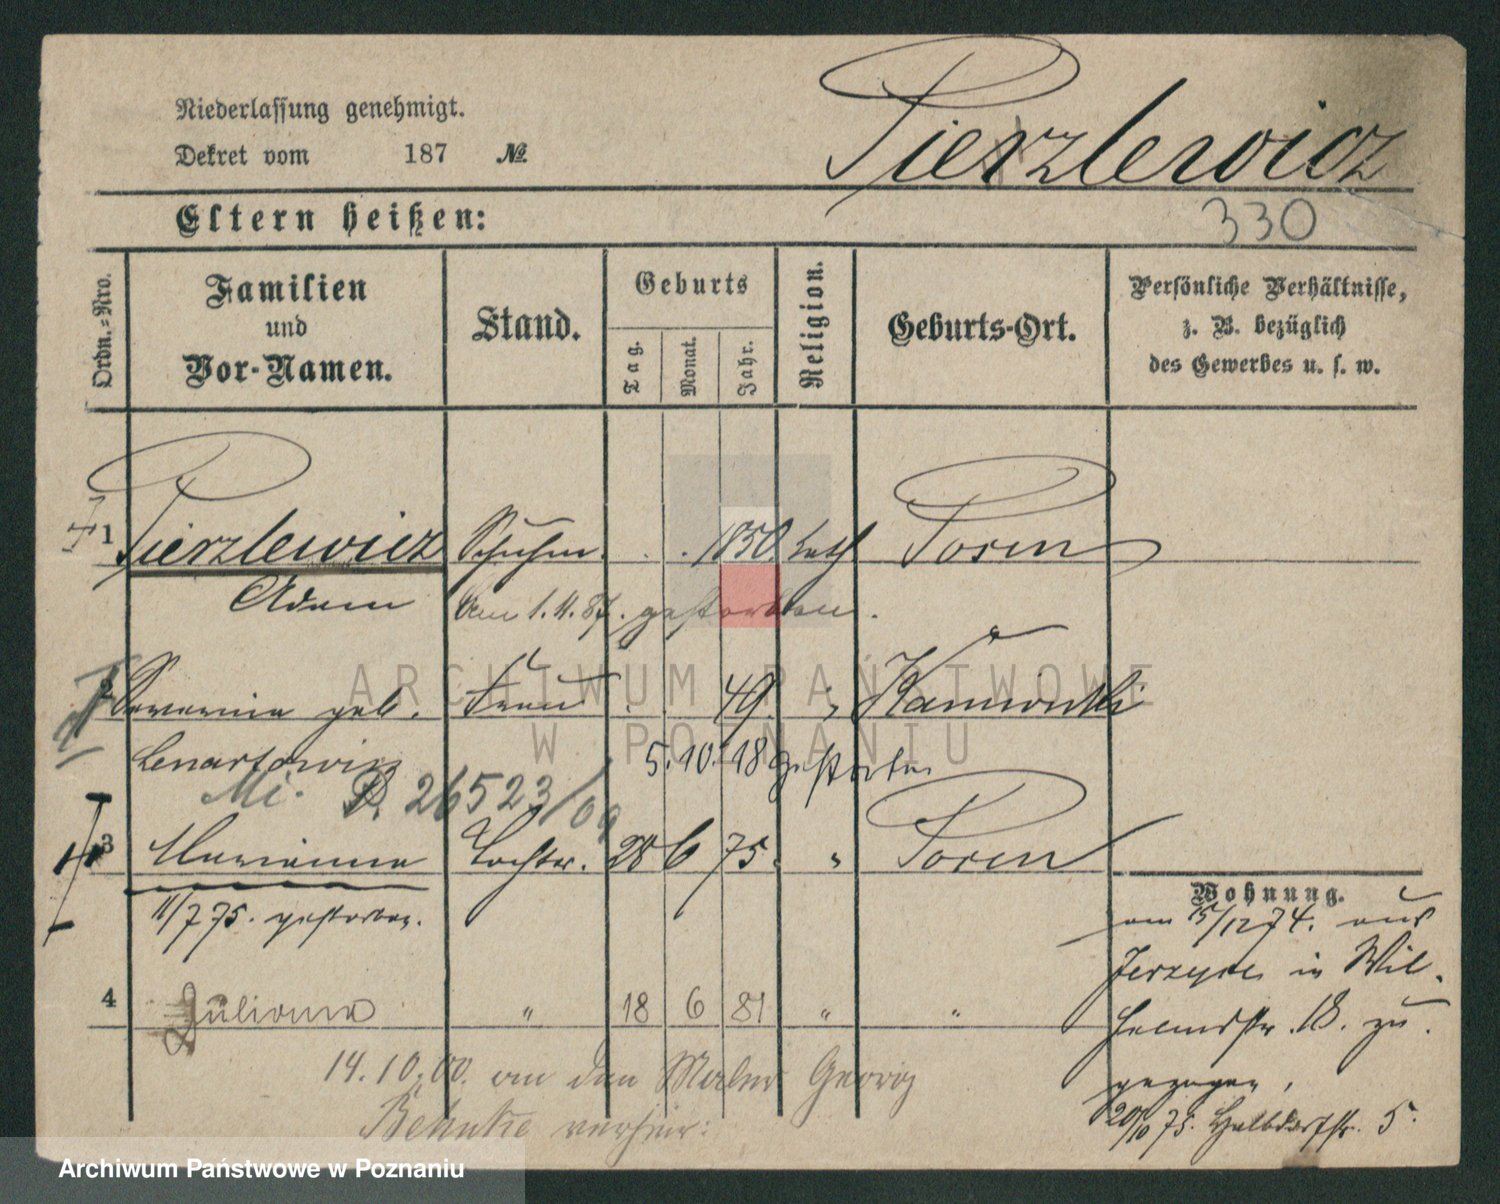 Niederlassung genehmigt.
Dekret vom 187 №
Pierzlewicz
Eltern heißen:
330
Ordn.-Nro.
Familien
und
Vor-Namen.
Stand.
Geburts
Tag.
Monat.
Jahr.
Religion.
Geburts-Ort.
Persönliche Verhältnisse,
z. B. bezüglich
des Gewerbes u. s. w.
1 Pierzlewicz Schuhm. 1850. kath Posen
Adam am 1.11.87. gestorben.
geb. Frau 49. "
Lenartowicz 5.10.18 gestorben
D. 26523/09
3 Marianna Tochter. 28 6 75. " Posen
11/7 75. gestorben.
4 Juliana " 18 6 81 " "
14.10.00. an den Maler Georg
Behnke verheir:
Wohnung.
am 15/12 74. aus
Jerzyce in Wil-
helmstr. 18. zu-
gezogen,
20/10 75. Halbdorfstr. 5.
ARCHIWUM PAŃSTWOWE
W POZNANIU
Archiwum Państwowe w Poznaniu